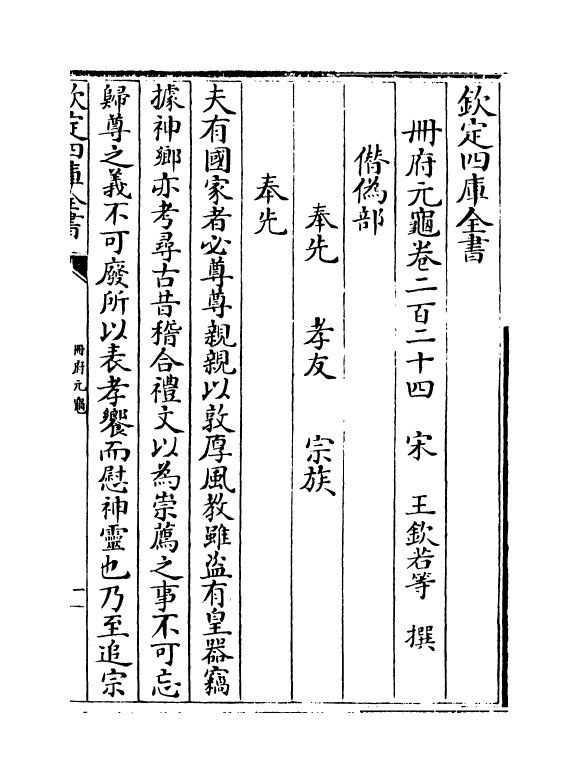 欽定四庫全書
冊府元龜卷二百二十四 宋 王欽若等 撰
僭偽部
奉先 孝友 宗族
奉先
夫有國家者必尊尊親親以敦厚風教雖盜有皇器竊
據神鄉亦考尋古昔稽合禮文以為崇薦之事不可忘
歸尊之義不可廢所以表孝饗而慰神靈也乃至追宗
欽定四庫全書
冊府元龜
一